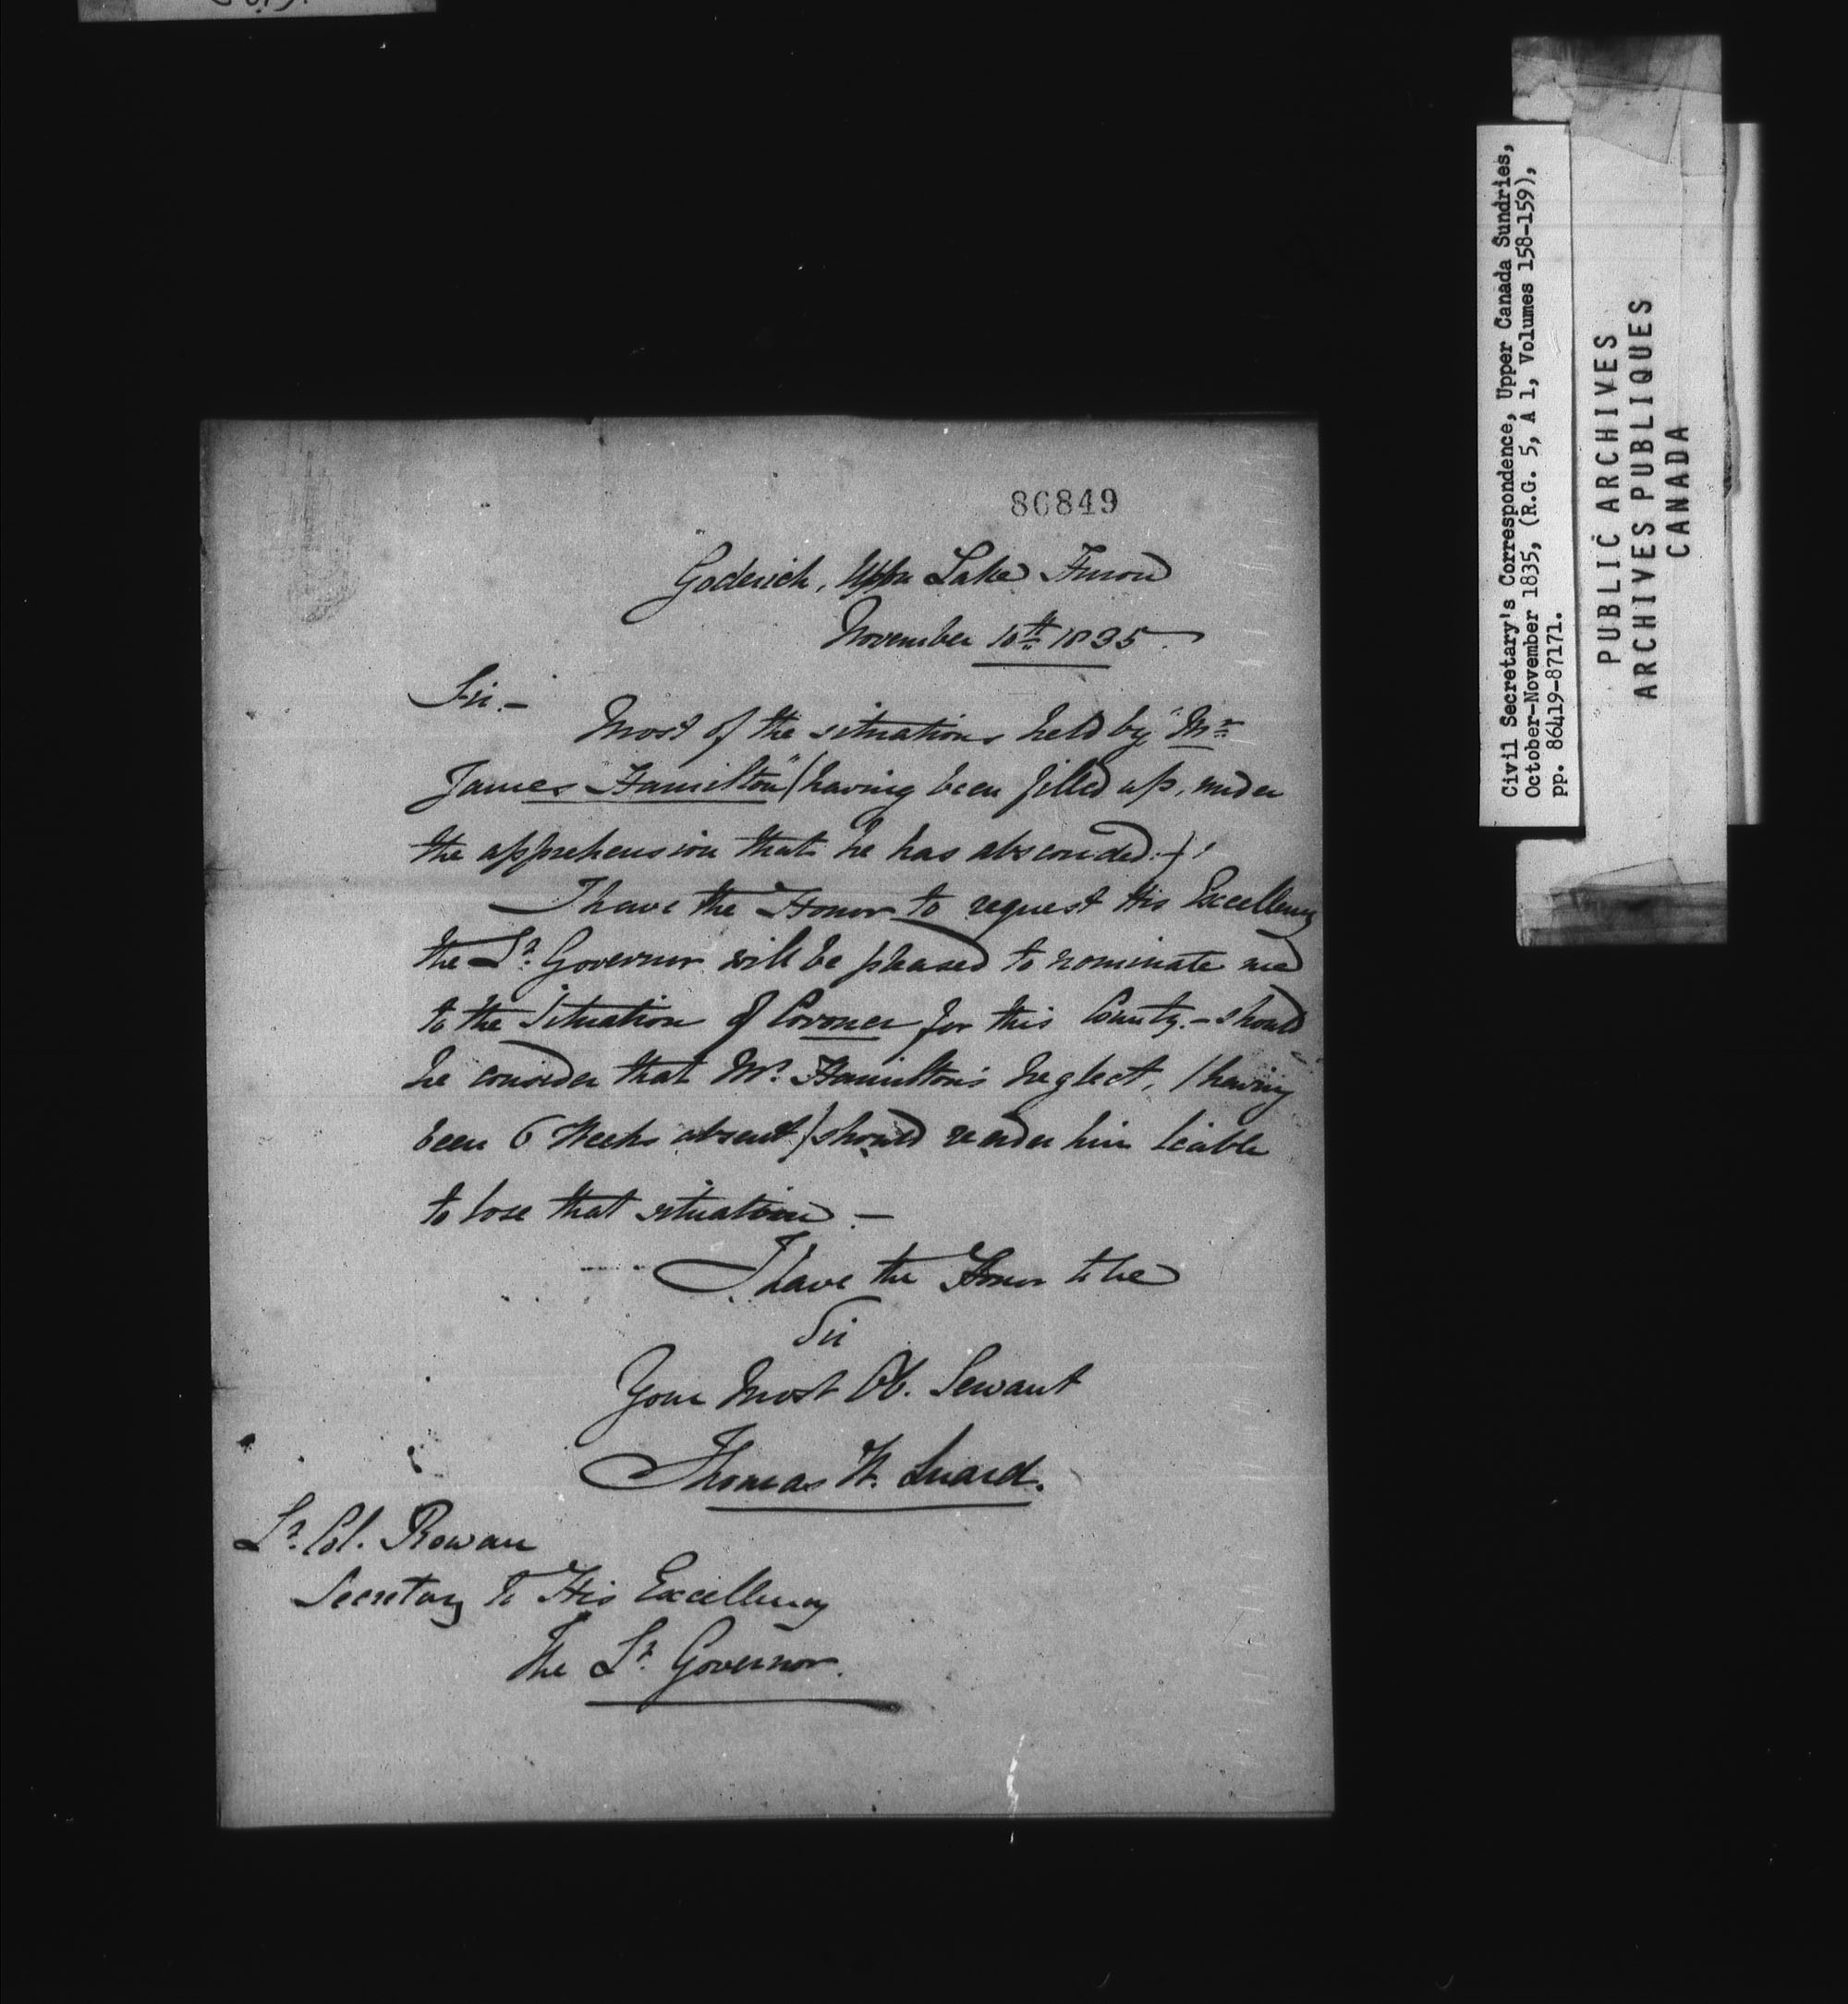 86849
Goderich, Upon Lake Huron
November 10th 1835.
Sir.-
Most of the situations held by "Mr
James Hamilton" (having been filled up, under
the apprehension that he has absconded.)
I have the Honor to request His Excellency
the Lt. Governor will be pleased to nominate me
to the Situation of Coroner for this County.- should
he consider that Mr. Hamilton's neglect, (having
been 6 Weeks absent) should render him liable
to lose that situation.-
I have the Honor to be
Sir
Your Most Ob. Servant
Thomas W. Luard.
Lt. Col. Rowan
Secretary to His Excellency
The Lt. Governor.
Civil Secretary's Correspondence, Upper Canada Sundries,
October-November 1835, (R.G. 5, A 1, Volumes 158-159),
pp. 86419-87171.
PUBLIC ARCHIVES
ARCHIVES PUBLIQUES
CANADA